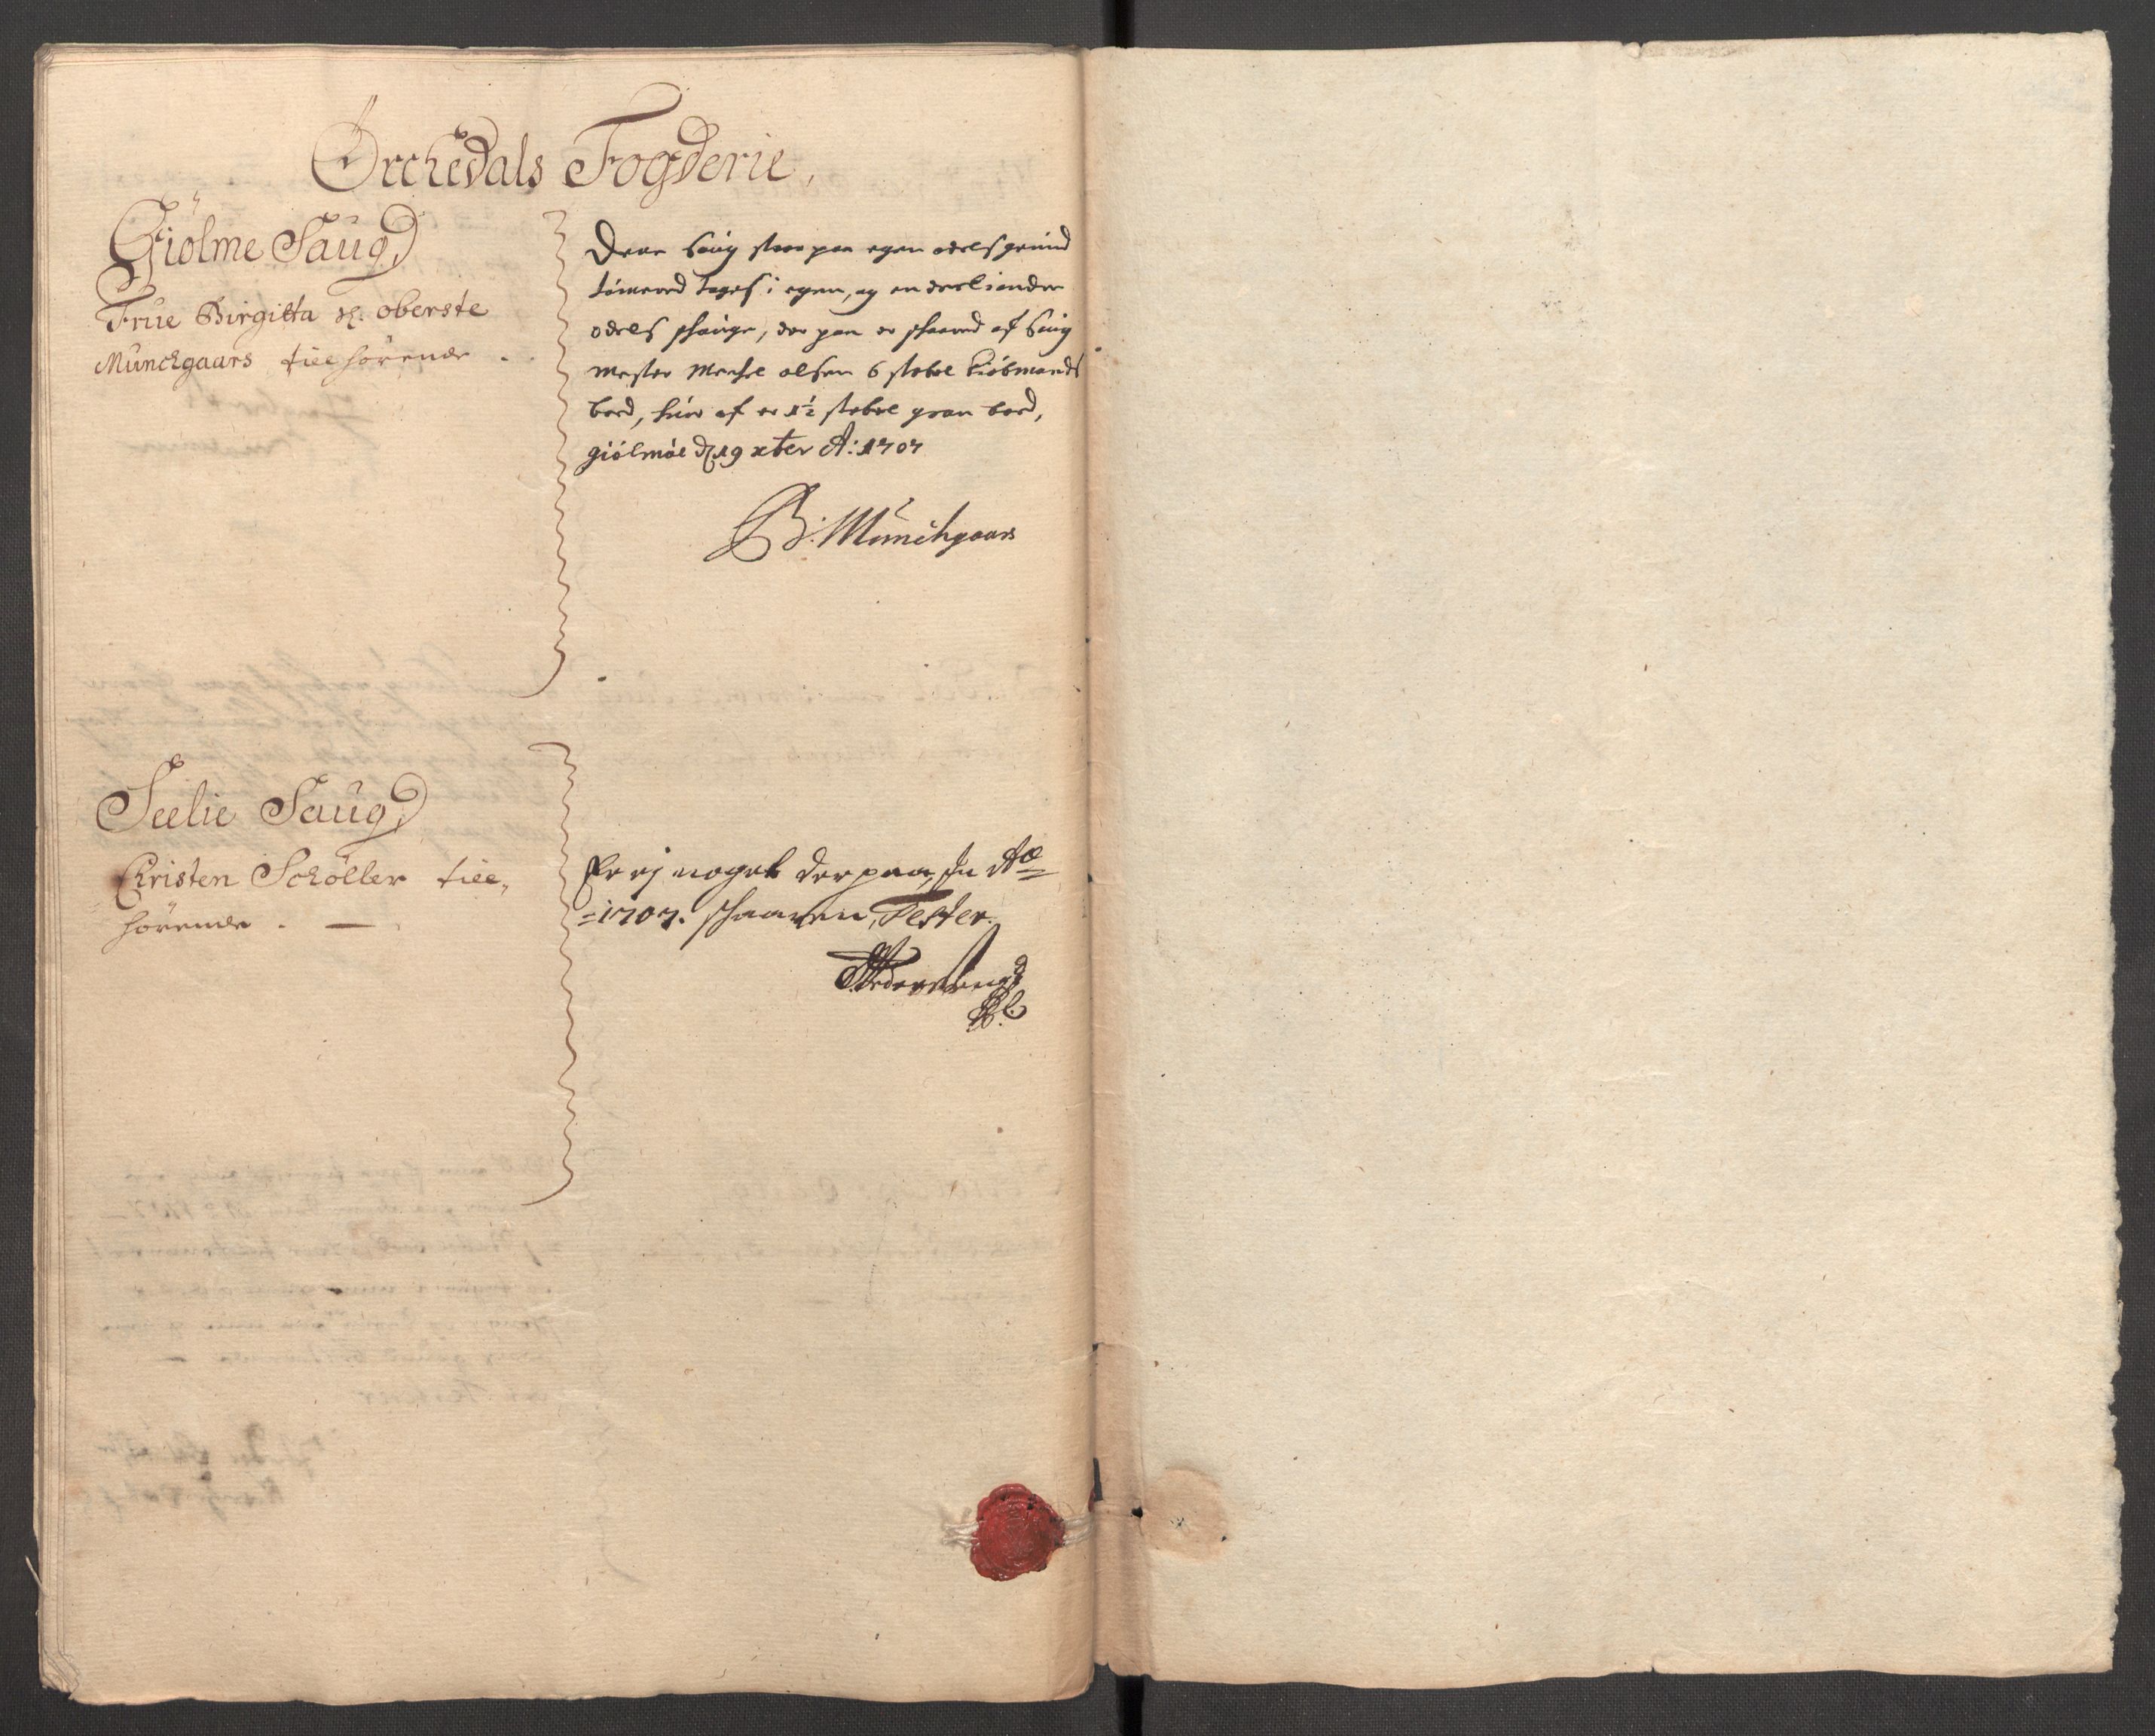 Orchedals Fogderie,
Giölme Saug,
Frue Birgitta Sl. oberste
Münchgaars tilhörende.
Dene Saug staar paa egen odels grund
tömered tages i egen, og en deel i andre
odels schauge, der paa er schaared af Saug
mester Mechel olsen 6 stabel kiöbmands
bord, hvor af er 1½ stabel gran bord,
giölmöe d 19 xber A: 1707
B: Münchgaars
Seelie Saug,
Christen Schöller till,,
hörende. —
Er ej noget der paa, in Ao
=1707. schaaren, Tester.